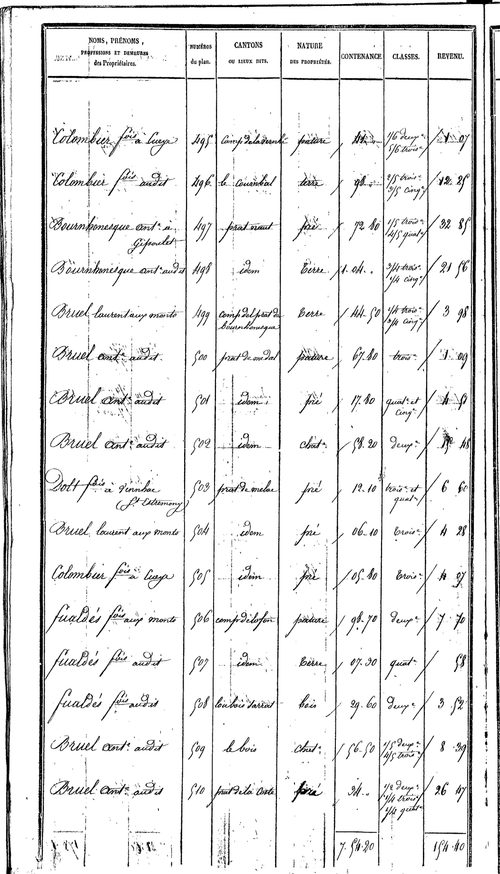 NOMS, PRÉNOMS, PROFESSIONS ET DEMEURES des Propriétaires. NUMÉROS du plan. CANTONS OU LIEUX DITS. NATURE DES PROPRIÉTÉS. CONTENANCE CLASSES. REVENU.
Colombier fois à 495 pature 1/6 deux 5/6 trois 1 07
Colombier fois audit 496 le terre 98 2/5 trois 3/5 cinq 12 25
Bournhonesque ant. à 497 pré 72 80 1/5 trois 4/5 quat 32 85
Bournhonesque ant. audit 498 idem terre 1. 04 3/4 trois 1/4 cinq 21 56
Bruel laurent aux monts 499 terre 44 50 1/4 trois 3/4 cinq 3 98
Bruel ant. audit 500 pature 67. 80 trois 1 09
Bruel ant. audit 501 idem pré 17. 80 quat et cinq
Bruel ant. audit 502 idem chat. 58. 20 deux
fois à 503 prat de pré 12. 10 trois et quat 6 60
Bruel laurent aux monts 504 idem pré 06. 10 trois 4 28
Colombier fois à 505 idem pré 05. 80 trois 4 07
fualdés fois aux monts 506 pature 98. 70 deux 7 70
fualdés fois audit 507 idem terre 07. 30 quat 58
fualdés fois audit 508 bois 29. 60 deux 3 52
Bruel ant. audit 509 le bois chat. 56. 50 1/5 deux 4/5 trois 8 39
Bruel ant. audit 510 prat de la coste pré 1/2 deux 1/4 trois 1/4 quat 26 47
7. 54. 20 154. 40